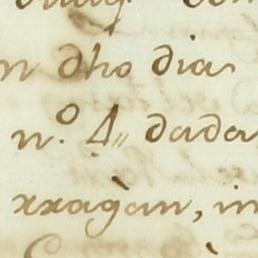 n dho dia
n.º 4,, dada
xxagàn, in